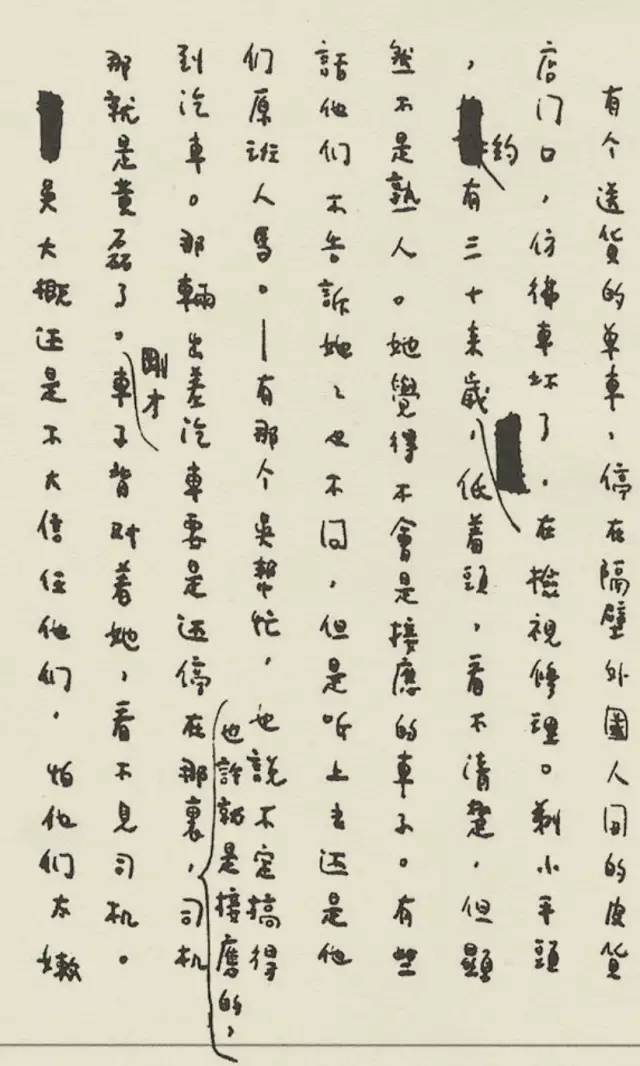 有个送貨的单車，停在隔壁外國人開的皮貨
店门口，仿彿車坏了，在檢視修理。剃小平頭
，約有三十來歲，低着頭，看不清楚，但顯
然不是熟人。她覺得不會是接應的車子。有些
話他们不告訴她々也不问，但是听上去还是他
们原班人馬。—有那个吳幫忙，也說不定搞得
也許就是接應的，
到汽車。那輛出差汽車要是还停在那裏，司机
剛才
那就是黃磊了。車子背对着她，看不見司机。
吳大概还是不大信任他们，怕他们太嫩